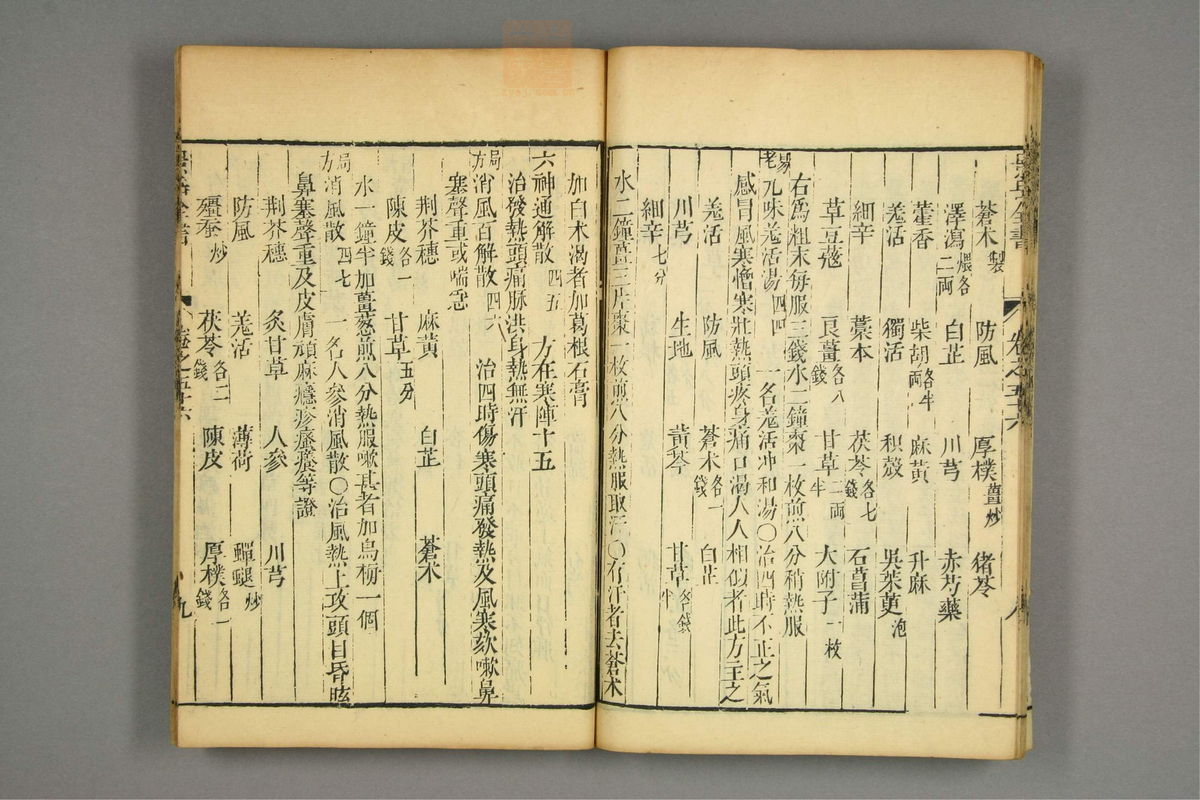 景岳全書 卷之五十六 八
蒼木製 防風 厚樸薑炒 猪苓
澤瀉煨各二両 白芷 川芎 赤芍藥
藿香 柴胡各半両 麻黄 升麻
羗活 獨活 枳殻 吳茱萸泡
細辛 藁本 茯苓各七錢 石菖蒲
草豆蔻 良薑各八錢 甘草二両半 大附子一枚
右爲粗末每服三錢水二鐘棗一枚煎八分稍熱服
易老九味羗活湯四四 一名羗活冲和湯○治四時不正之氣
感冒風寒憎寒壯熱頭疼身痛口渴人人相似者此方主之
羗活 防風 蒼木各一錢 白芷
川芎 生地 黄芩 甘草各錢半
細辛七分
水二鐘薑三片棗一枚煎八分熱服取汗○有汗者去蒼术
加白术渴者加葛根石膏
六神通解散四五 方在寒陣十五
治發熱頭痛脉洪身熱無汗
局方消風百解散四六 治四時傷寒頭痛發熱及風寒欬嗽鼻
塞聲重或喘急
荆芥穗 麻黄 白芷 蒼术
陳皮各一錢 甘草五分
水一鐘半加薑葱煎八分熱服嗽甚者加烏梅一個
局方消風散四七 一名人參消風散○治風熱上攻頭目昏眩
鼻塞聲重及皮膚頑麻癮疹瘙癢等證
荆芥穗 炙甘草 人參 川芎
防風 羗活 薄荷 蟬蜕炒
殭蚕炒 茯苓各二錢 陳皮 厚樸各一錢
景岳全書 卷之五十六 九